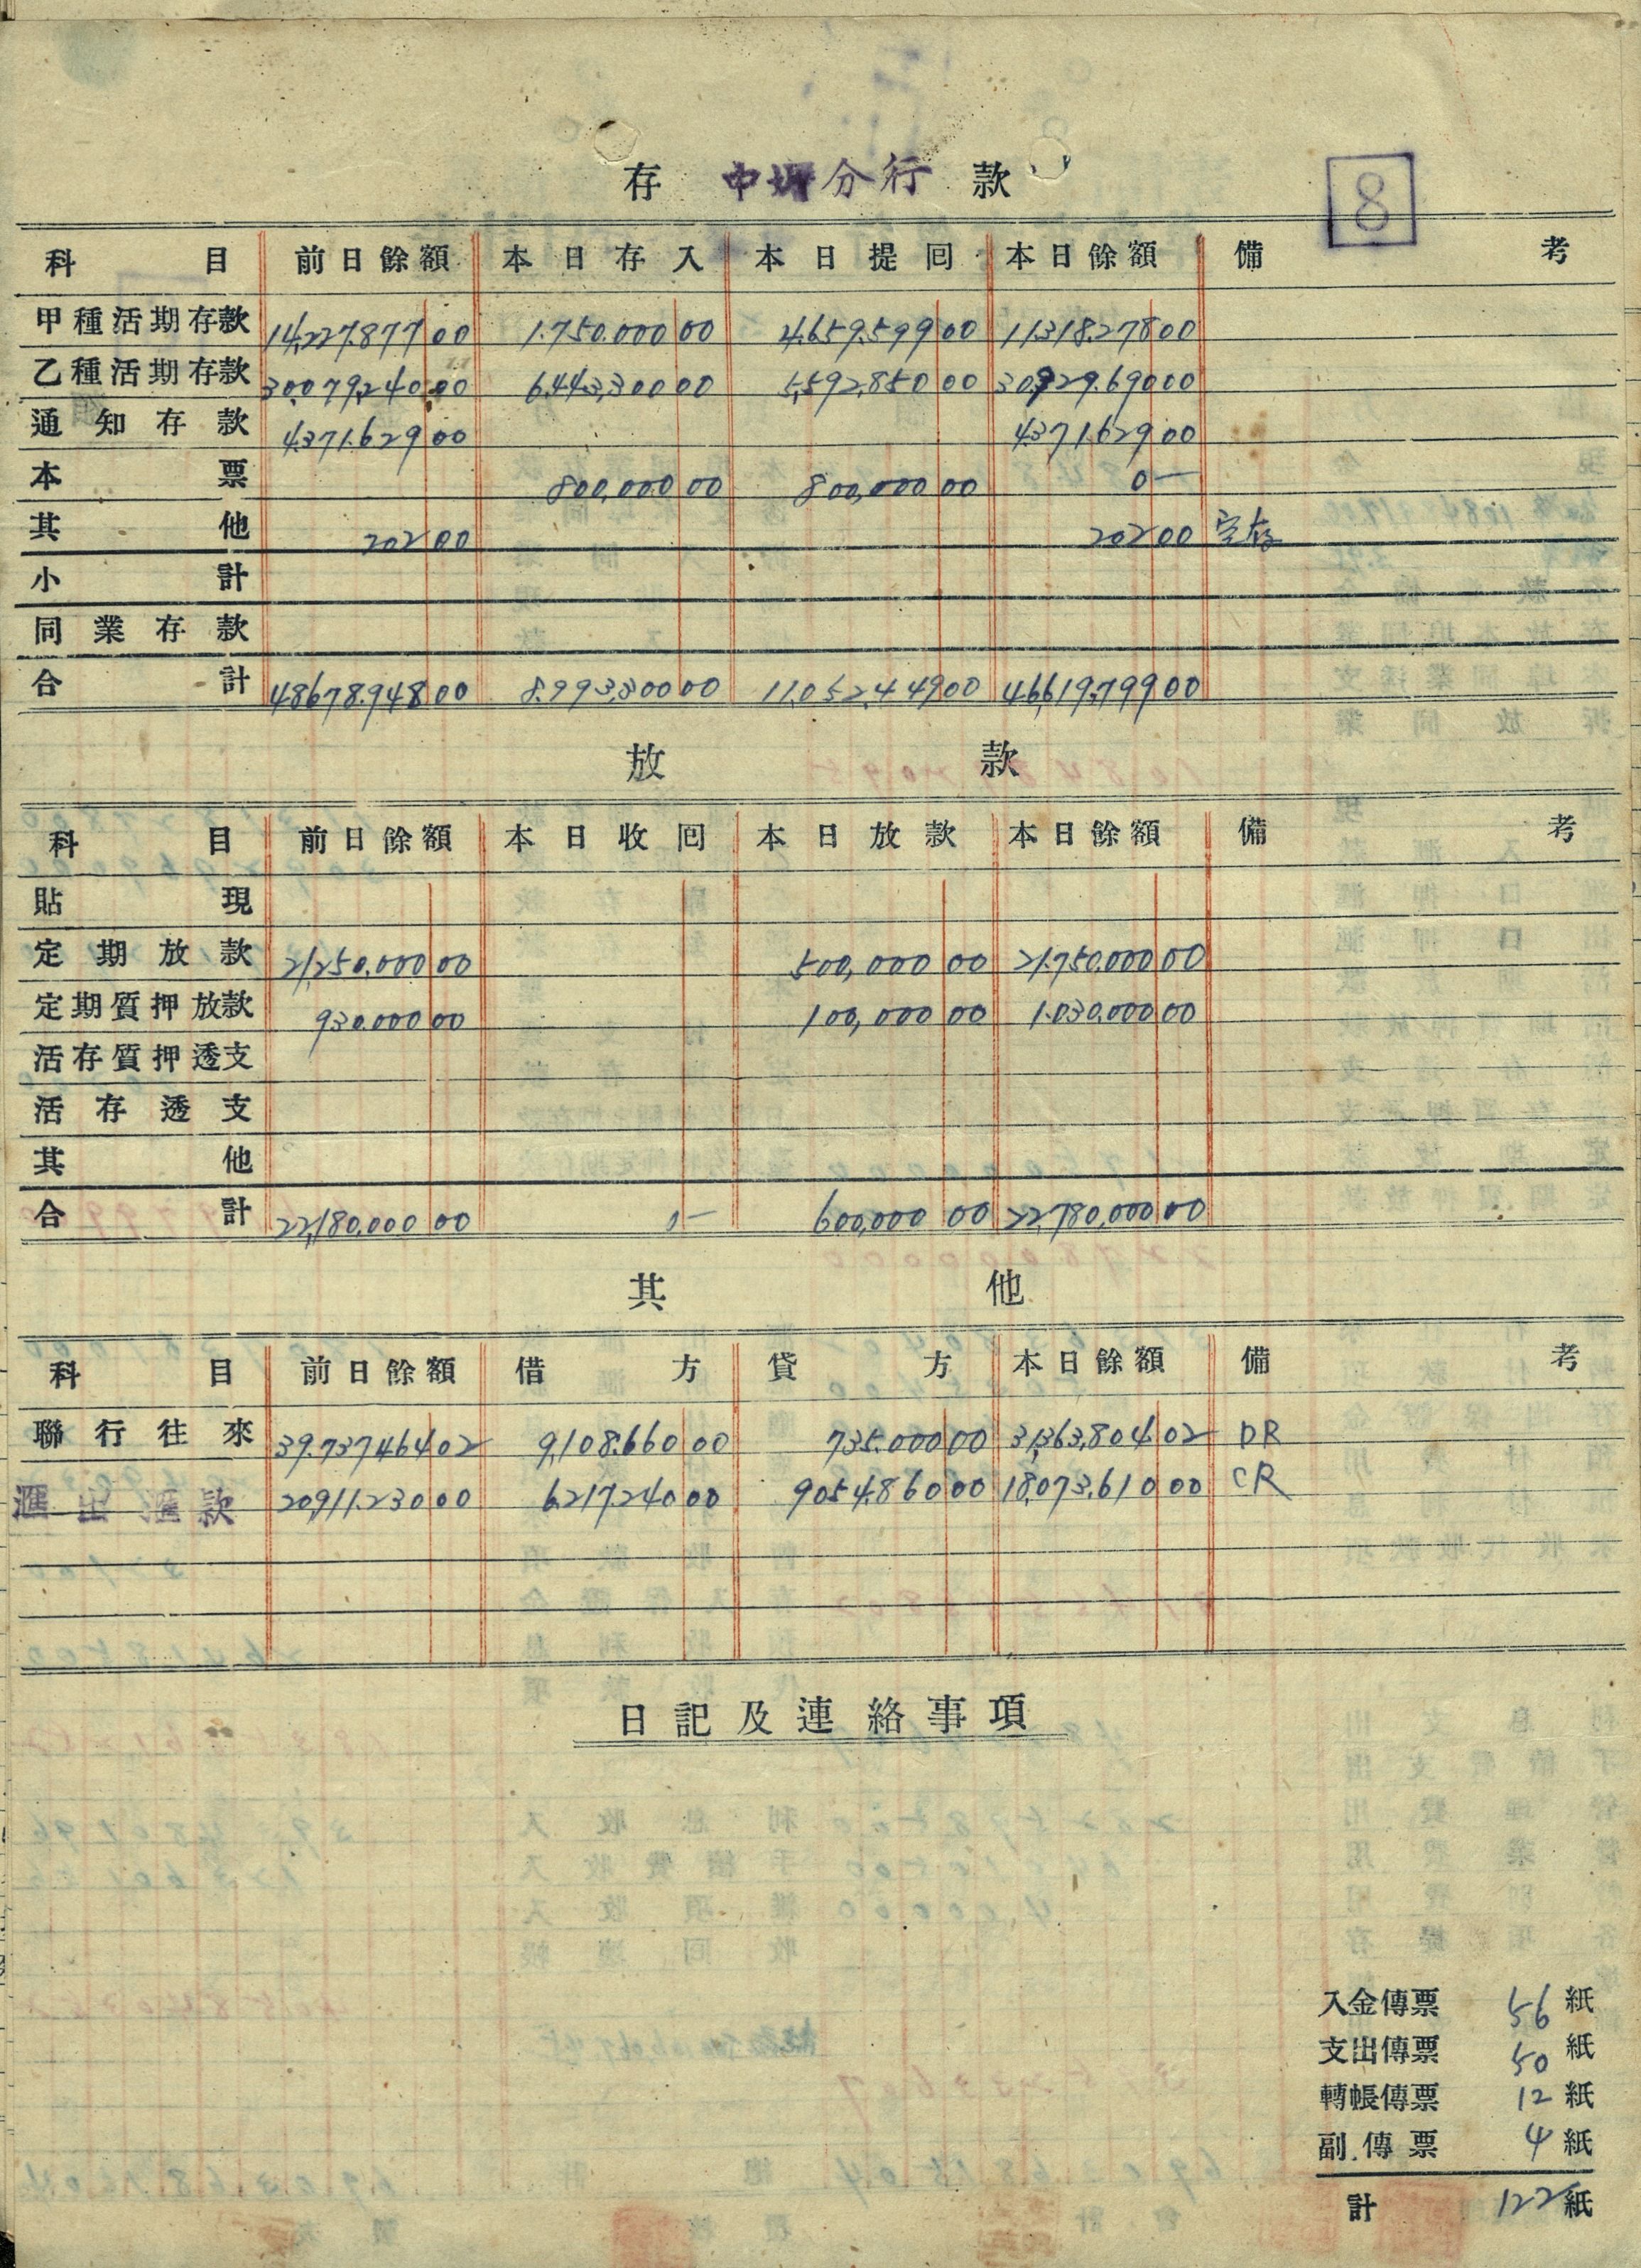 存 中壢分行 款
8
科目 前日餘額 本日存入 本日提囘 本日餘額 備考
甲種活期存款 14,227.877 00 1.750.000 00 4.659.599 00 11.318.278 00
乙種活期存款 30.079.240.00 6.443.300 00 5,592.850 00 30.929.690 00
通知存款 4.371.629 00 4.371.629 00
本票 800,000 00 800,000 00 0—
其他 202 00 202 00 定存
小計
同業存款
合計 48678.948 00 8.993.300 00 11.052.449 00 46,619.799 00
放款
科目 前日餘額 本日收囘 本日放款 本日餘額 備考
貼現
定期放款 21,250,000 00 500,000 00 21.750.000 00
定期質押放款 930.000 00 100,000 00 1.030.000 00
活存質押透支
活存透支
其他
合計 22,180,000 00 0— 600,000 00 22,780,000 00
其他
科目 前日餘額 借方 貸方 本日餘額 備考
聯行往來 39.737464 02 9,108.660 00 735.000 00 31,363,804 02 DR
滙出滙款 20,911.230 00 6.217.240 00 9.054.860 00 18,073,610 00 CR
日記及連絡事項
入金傳票 56 紙
支出傳票 50 紙
轉帳傳票 12 紙
副傳票 4 紙
計 122 紙